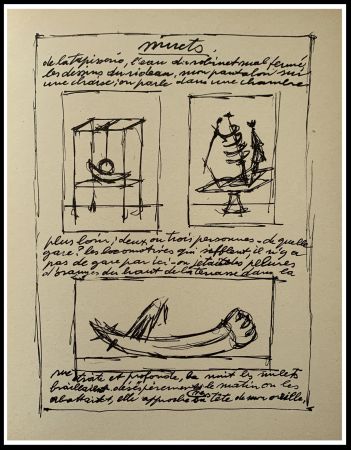 mulets
de la tapisserie, l'eau du robinet mal fermé,
les dessins du rideau, mon pantalon sur
une chaise; on parle dans une chambre
plus loin; deux ou trois personnes - de quelle
gare? les locomotives qui sifflent, il n'y a
pas de gare par ici - on jetait des pelures
d'oranges du haut de la terrasse dans la
rue étroite et profonde, la nuit les mulets
braillaient désespérément, le matin on les
abattait, elle approche sa tête de mon oreille,